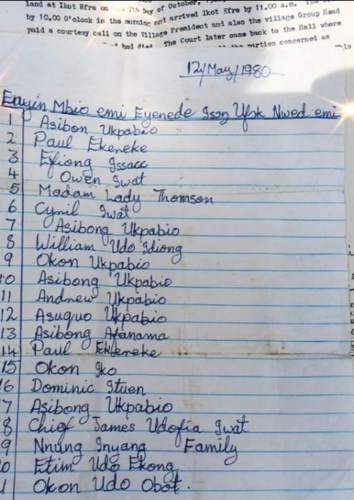 land at Ikot Efre on the 7th Day of October,
by 10.00 o'clock in the morning and arrived Ikot Efre by 11.00 a.m. The
paid a courtesy call on the Village President and also the Village Group Head
had died. The Court later came back to the Hall where
the parties concerned as
12/May/1980
Enyin Mbio emi Eyenede Isong Ufok Nwed emi
1 Asibon Ukpabio
2 Paul Ekeneke
3 Efiong Issacc
4 Owen Iwat
5 Madam Lady Thomson
6 Cyril Iwat
7 Asibong Ukpabio
8 William Udo Idiong
9 Okon Ukpabio
10 Asibong Ukpabio
11 Andrew Ukpabio
12 Asuquo Ukpabio
13 Asibong Afanama
14 Paul Ekeneke
15 Okon Iko
16 Dominic Ituen
7 Asibong Ukpabio
8 Chief James Udofia Iwat
9 Nnung Inyang Family
0 Etim Udo Ekong
1 Okon Udo Obot.